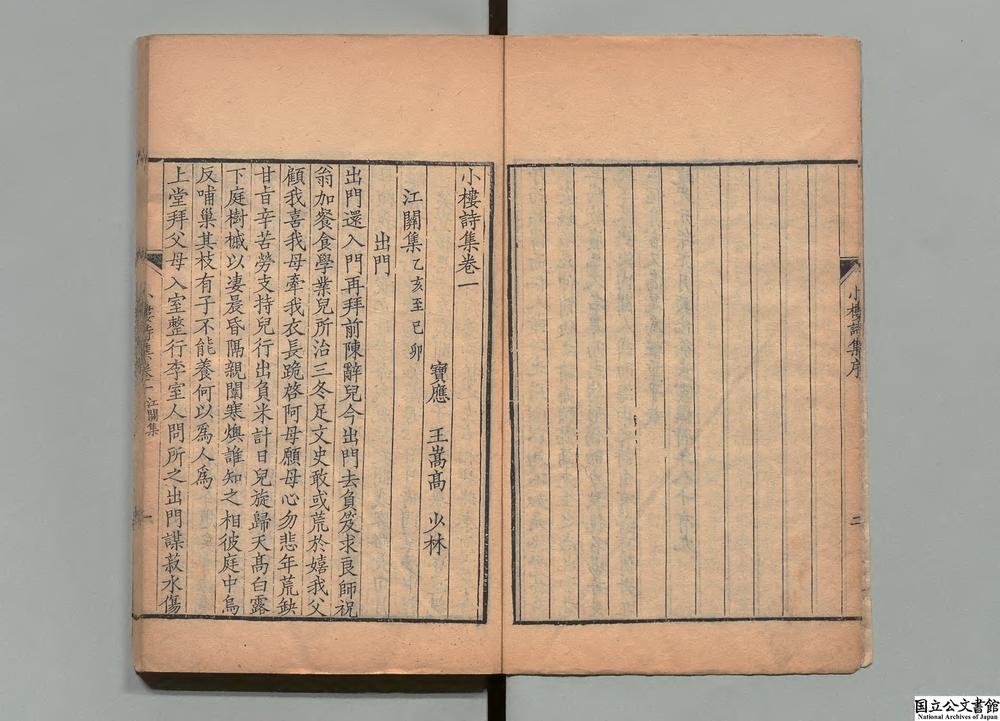 小樓詩集序
二
小樓詩集卷一
寶應 王嵩高 少林
江關集乙亥至己卯
出門
出門還入門再拜前陳辭兒今出門去負笈求良師祝
翁加餐食學業兒所治三冬足文史敢或荒於嬉我父
顧我喜我母牽我衣長跪啓阿母願母心勿悲年荒缺
甘旨辛苦勞支持兒行出負米計日兒旋歸天高白露
下庭樹槭以凄晨昏隔親闈寒燠誰知之相彼庭中烏
反哺巢其枝有子不能養何以爲人爲
上堂拜父母入室整行李室人問所之出門謀菽水傷
小樓詩集卷一 江關集
一
国立公文書館
National Archives of Japan